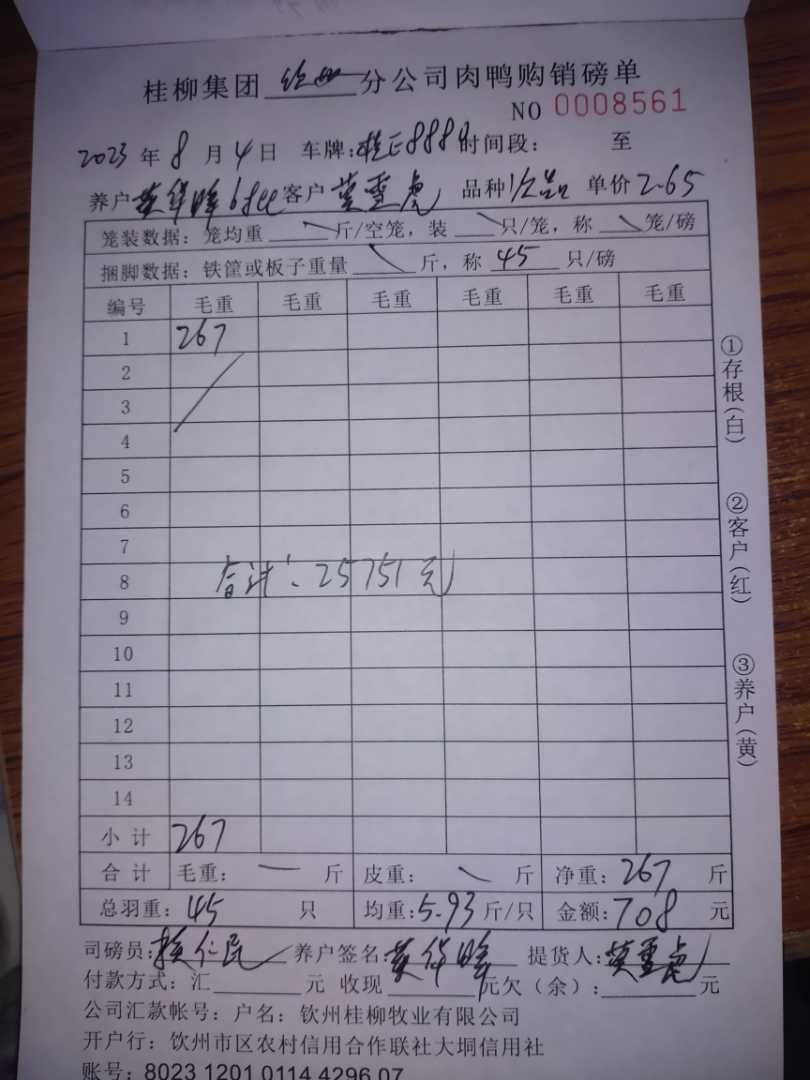 桂柳集团 分公司肉鸭购销磅单
NO 0008561
2023 年 8 月 4 日 车牌: 8889 时间段: 至
养户 客户 莫雪虎 品种 次品 单价 2.65
笼装数据: 笼均重 斤/空笼, 装 只/笼, 称 笼/磅
捆脚数据: 铁筐或板子重量 斤, 称 45 只/磅
编号 毛重 毛重 毛重 毛重 毛重 毛重
1 267
2
3
4
5
6
7
8 合计: 25751元
9
10
11
12
13
14
小计 267
合计 毛重: 斤 皮重: 斤 净重: 267 斤
总羽重: 45 只 均重: 5.93 斤/只 金额: 708 元
司磅员: 养户签名: 提货人: 莫雪虎
付款方式: 汇 元 收现 元欠(余): 元
公司汇款帐号: 户名: 钦州桂柳牧业有限公司
开户行: 钦州市区农村信用合作联社大垌信用社
账号: 8023 1201 0114 4296 07
①存根(白)
②客户(红)
③养户(黄)